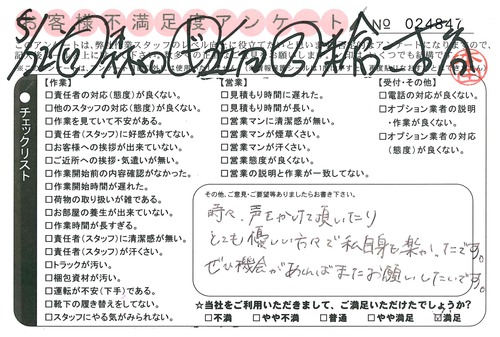 お客様不満足度アンケート
№ 024847
チェックリスト
【作業】
□責任者の対応(態度)が良くない。
□他のスタッフの対応(態度)が良くない。
□作業を見ていて不安がある。
□責任者(スタッフ)に好感が持てない。
□お客様への挨拶が出来ていない。
□ご近所への挨拶・気遣いが無い。
□作業開始前の内容確認がなかった。
□作業開始時間が遅れた。
□荷物の取り扱いが雑である。
□お部屋の養生が出来ていない。
□作業時間が長すぎる。
□責任者(スタッフ)に清潔感が無い。
□責任者(スタッフ)が汗くさい。
□トラックが汚い。
□梱包資材が汚い。
□運転が不安(下手)である。
□靴下の履き替えをしてない。
□スタッフにやる気がみられない。
【営業】
□見積もり時間に遅れた。
□見積もり時間が長い。
□営業マンに清潔感が無い。
□営業マンが煙草くさい。
□営業マンが汗くさい。
□営業態度が良くない。
□営業の説明と作業が一致してない。
【受付・その他】
□電話の対応が良くない。
□オプション業者の説明
・作業が良くない。
□オプション業者の対応
(態度)が良くない。
その他、ご意見・ご要望等ありましたらお書き下さい。
時々、声をかけて頂いたり
とても優しい方々で私自身も楽しかったです。
ぜひ機会があればまたお願いしたいです。
☆当社をご利用いただきまして、ご満足いただけたでしょうか?
□不満 □やや不満 □普通 □やや満足 ☑満足